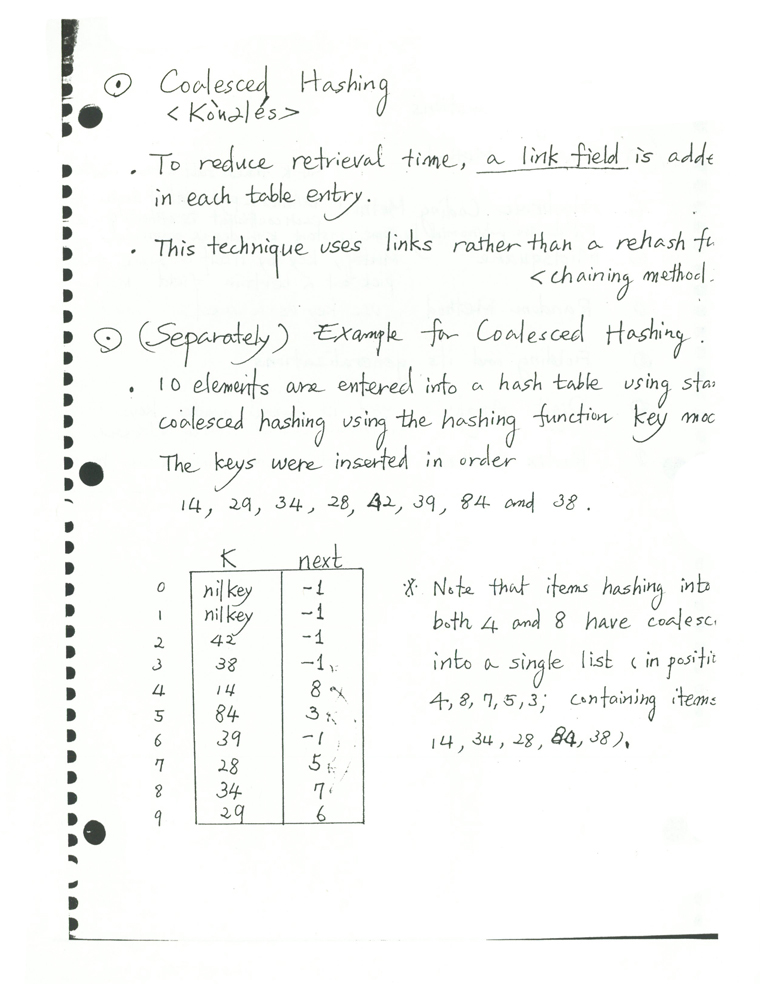 ⊙ Coalesced Hashing
<Kònzlés>
· To reduce retrieval time, a link field is adde
in each table entry.
· This technique uses links rather than a rehash fu
<chaining method.
⊙ (Separately) Example for Coalesced Hashing.
· 10 elements are entered into a hash table using sta
coalesced hashing using the hashing function key mod
The keys were inserted in order
14, 29, 34, 28, 42, 39, 84 and 38.
K next
0 nilkey -1
1 nilkey -1
2 42 -1
3 38 -1
4 14 8
5 84 3
6 39 -1
7 28 5
8 34 7
9 29 6
※ Note that items hashing into
both 4 and 8 have coalesc
into a single list (in positi
4, 8, 7, 5, 3; containing items
14, 34, 28, 84, 38).